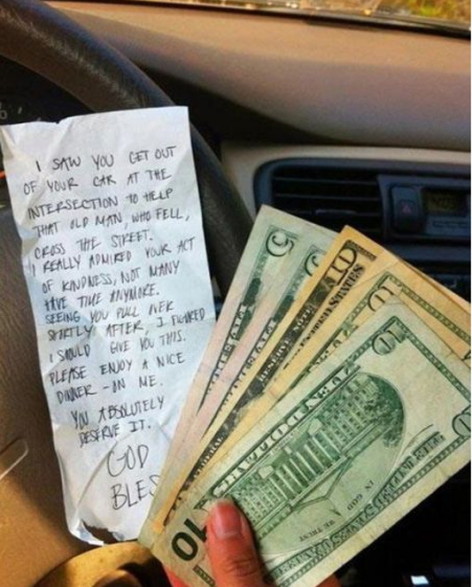 I SAW YOU GET OUT
OF YOUR CAR AT THE
INTERSECTION TO HELP
THAT OLD MAN WHO FELL,
CROSS THE STREET.
I REALLY ADMIRED YOUR ACT
OF KINDNESS, NOT MANY
HAVE TIME ANYMORE.
SEEING YOU PULL OVER
SHORTLY AFTER, I FIGURED
I SHOULD GIVE YOU THIS.
PLEASE ENJOY A NICE
DINNER - ON ME.
YOU ABSOLUTELY
DESERVE IT.
GOD
BLES
5
5
10
10
IN GOD WE TRUST